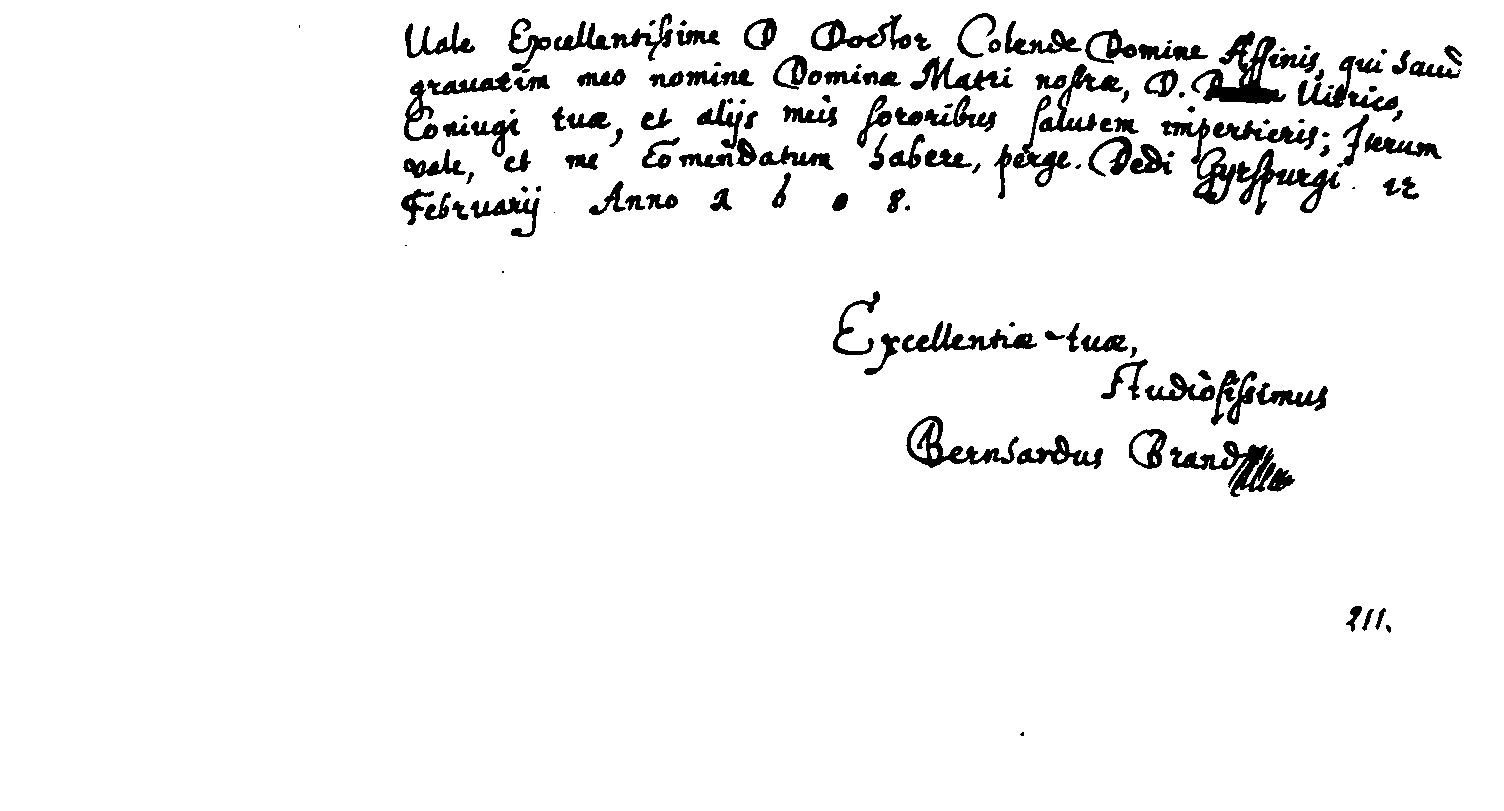 Uale Excellentissime D Doctor Colende Domine Affinis, qui haud
grauatim meo nomine Dominæ Matri nostræ, D. Uitrico,
Coniugi tuæ, et alijs meis sororibus salutem impertieris; Iterum
vale, et me Com̃endatum habere, perge. Dedi Gyrspurgi 12
Februarij Anno 1 6 0 8.
Excellentiæ tuæ,
Studiosissimus
Bernhardus Brand
211.